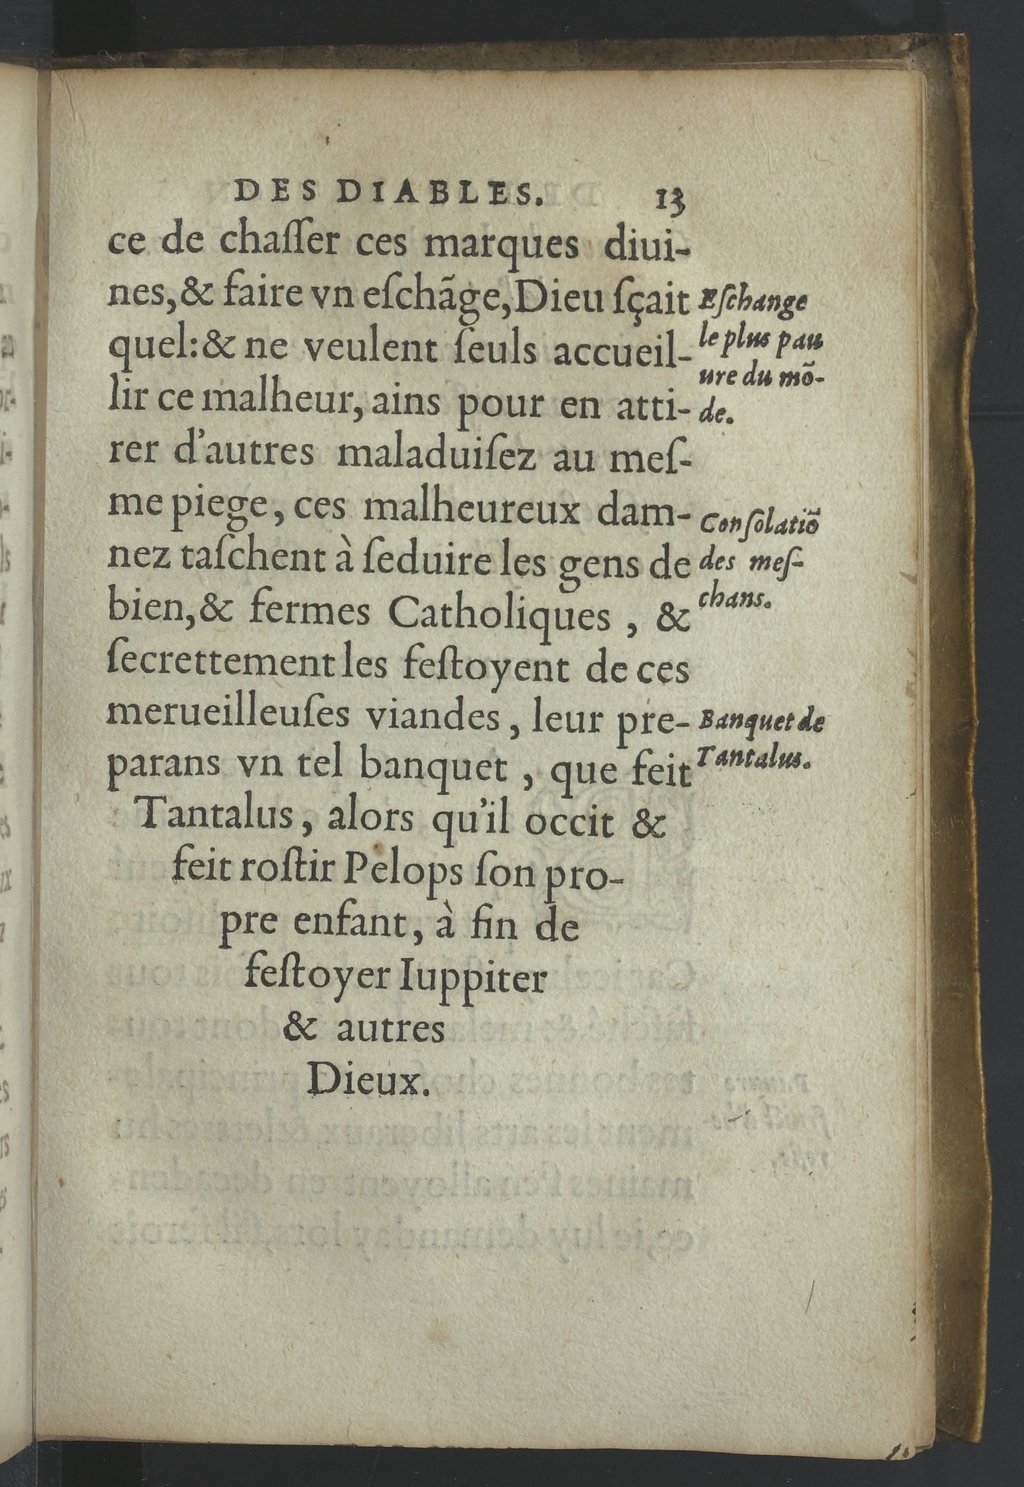 DES DIABLES. 13
ce de chaſſer ces marques diui-
nes, & faire vn eſchãge, Dieu ſçait
quel: & ne veulent ſeuls accueil-
lir ce malheur, ains pour en atti-
rer d'autres maladuiſez au meſ-
me piege, ces malheureux dam-
nez taſchent à ſeduire les gens de
bien, & fermes Catholiques , &
ſecrettement les feſtoyent de ces
merueilleuſes viandes, leur pre-
parans vn tel banquet , que feit
Tantalus, alors qu'il occit &
feit roſtir Pelops ſon pro-
pre enfant, à fin de
feſtoyer Iuppiter
& autres
Dieux.
Eſchange
le plus pau
ure du mõ-
de.
Conſolatiõ
des meſ-
chans.
Banquet de
Tantalus.